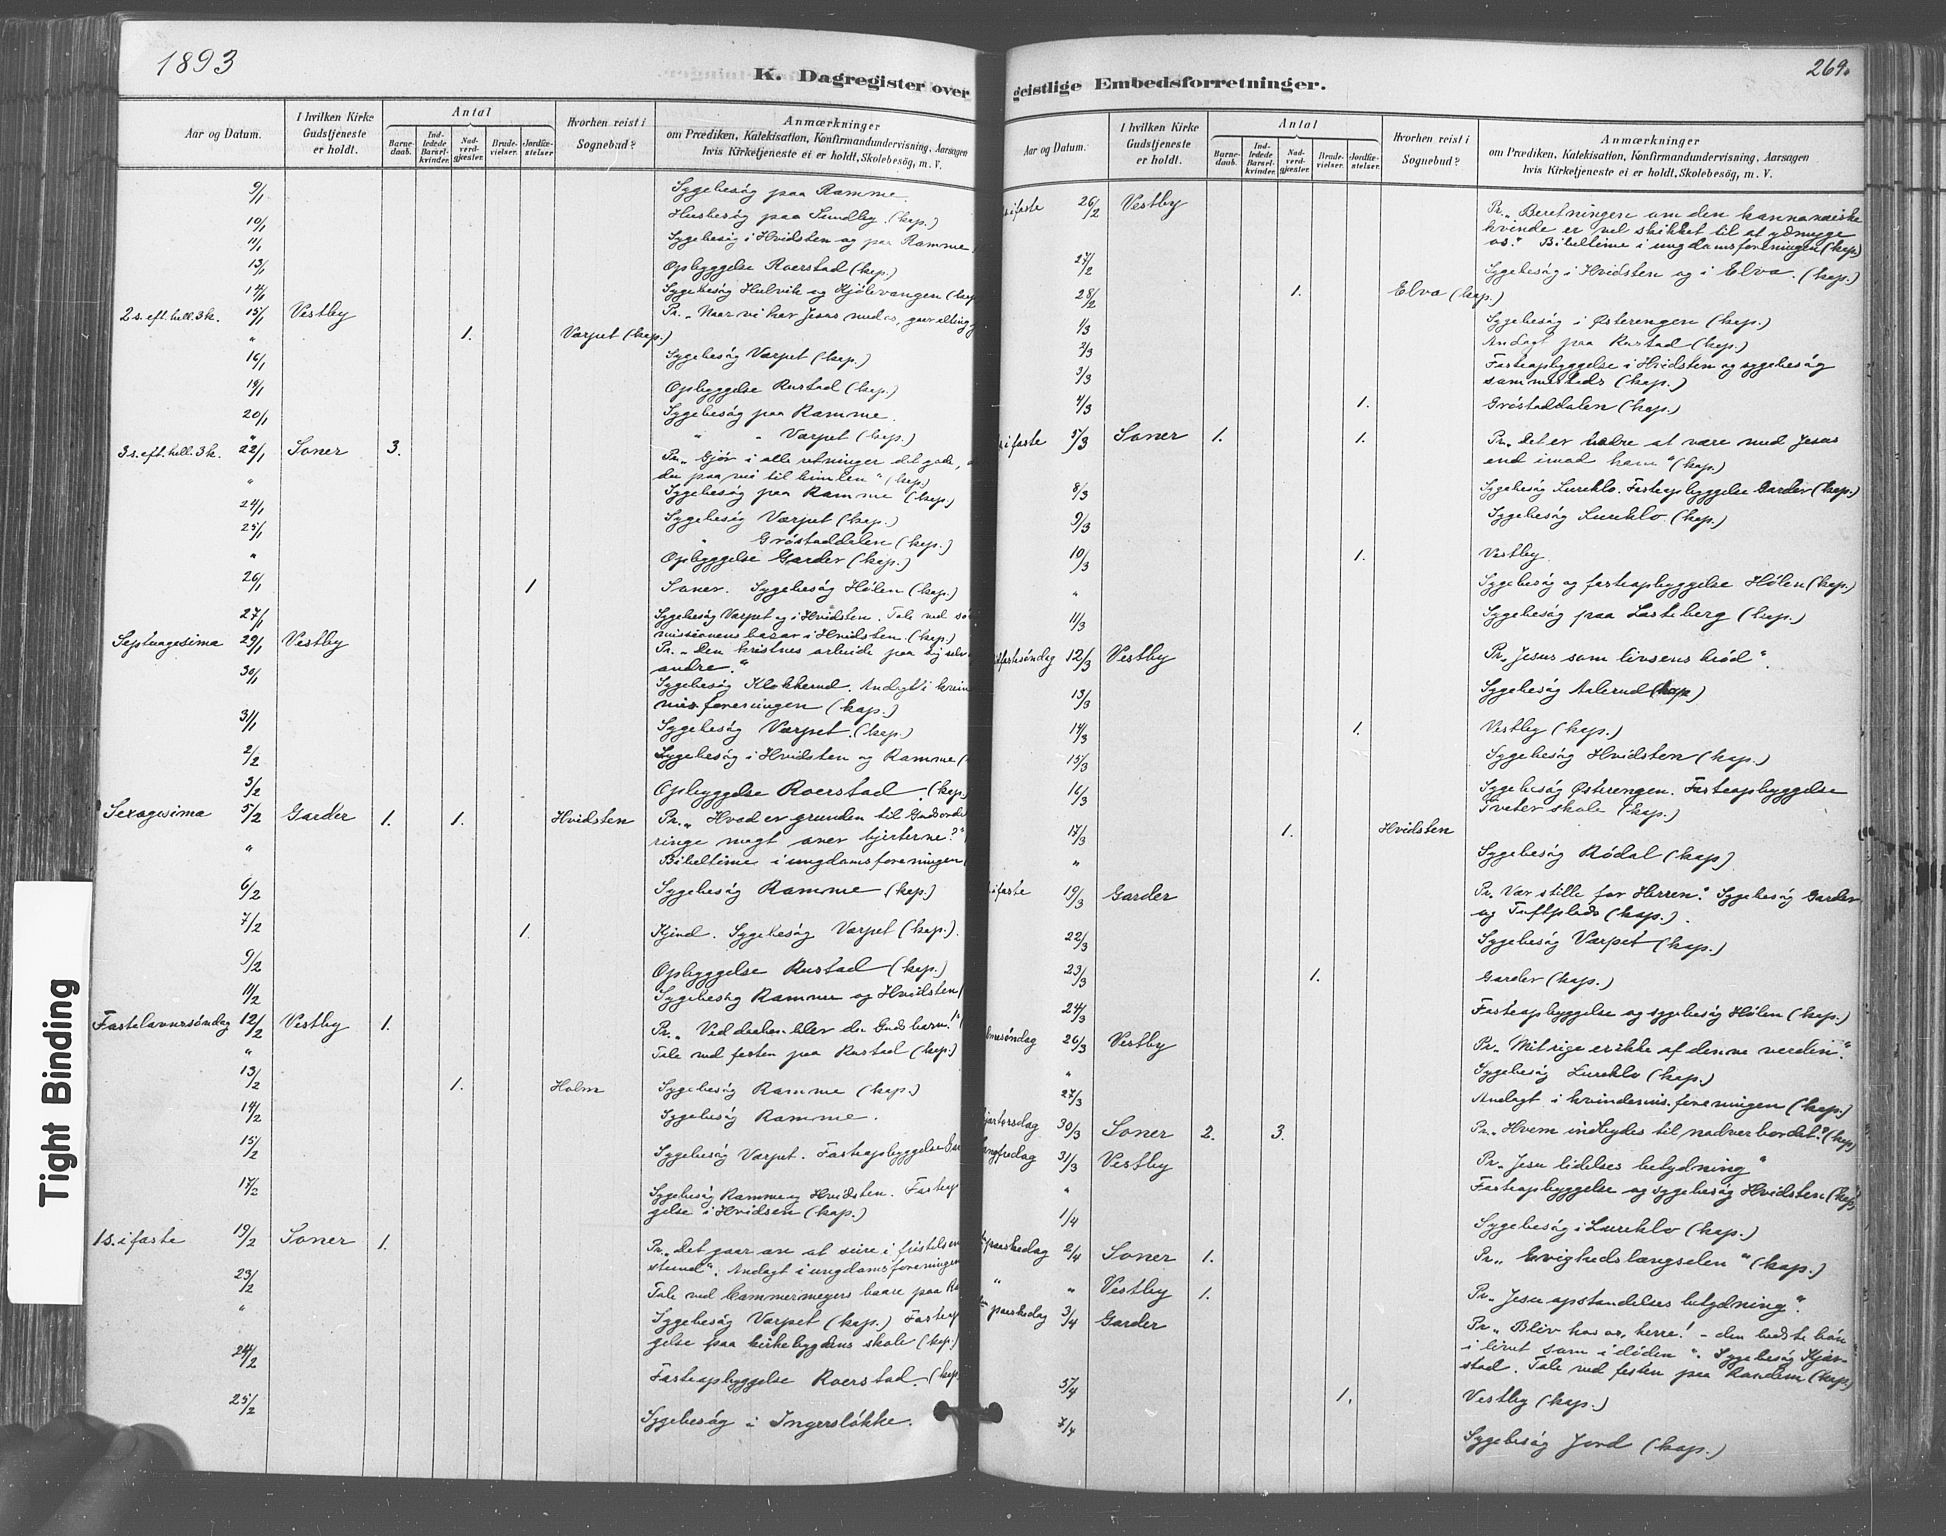 1893
K. Dagregister over
Aar og Datum.
I hvilken Kirke Gudstjeneste er holdt.
Antal
Barnedaab.
Indledede Barselkvinder.
Nadverdgjester.
Brudevielser.
Jordfæstelser
Hvorhen reist i Sognebud?
Anmærkninger
om Prædiken, Katekisation, Konfirmandundervisning, Aarsagen
hvis Kirketjeneste ei er holdt, Skolebesög, m. V.
9/1 Sygebesøg paa Ramme.
10/1 Husbesøg paa Sundby. (kap.)
11/1 Sygebesøg i Hvidsten og paa Ramme
13/1 Opbyggelse Roerstad (kap.)
14/1 Sygebesøg Hulvik og Kjølevangen
2 s. eft. hell. 3 k. 15/1 Vestby Pr. „Naar vi har Jesus med os, gaar alting
" 1. Varpet (kap.)
16/1 Sygebesøg Varpet (kap.)
Opbyggelse Rustad (kap.)
20/1 Sygebesøg paa Ramme.
" " " Varpet (kap.)
3 s. eft. hell. 3 k. 22/1 Soner 3. Pr. „Gjør i alle retninger det gode,
du paa vei til himlen" (kap.)
" Sygebesøg paa Ramme (kap.)
24/1 Sygebesøg Varpet (kap.)
25/1 " Grøstaddalen (kap.)
" Opbyggelse Garder (kap.)
26/1 1 Soner. Sygebesøg Hølen (kap.)
27/1 Sygebesøg Varpet og i Hvidsten. Tale ved
missionens basar i Hvidsten. (kap.)
Septuagesima 29/1 Vestby Pr. „Den kristnes arbeide paa sig selv
andre"
30/1 Sygebesøg Klokkerud. Andagt i
misforeningen (kap.)
31/1 Sygebesøg Varpet. (kap.)
2/2 Sygebesøg i Hvidsten og Ramme
3/2 Opbyggelse Roerstad. (kap.)
Sexagesima 5/2 Garder 1. 1. Hvidsten Pr. „Hvad er grunden til Guds ords
ringe magt over hjerterne?"
" Bibeltime i ungdomsforeningen
6/2 Sygebesøg Ramme (kap.)
7/2 1. Kjind. Sygebesøg Varpet (kap.).
9/2 Opbyggelse Rustad (kap.)
11/2 Sygebesøg Ramme og Hvidsten
Fastelavnssøndag 12/2 Vestby 1. Pr. „Ved daaben blev du Guds barn!"
" Tale ved festen paa Rustad (kap.)
13/2 1. Holm Sygebesøg Ramme (kap.)
14/2 Sygebesøg Ramme.
15/2 Sygebesøg Varpet. Fasteopbyggelse
17/2 Sygebesøg Ramme og Hvidsten.
gelse i Hvidsen (kap.)
1 s. i faste 19/2 Soner 1. Pr. „Det gaar an at seire i fristelsens
stund". Andagt i ungdomsforeningen
23/2 Tale ved Cammermeyers baare paa
" Sygebesøg Varpet (kap.)
gelse paa kirkebygdens skole (kap.)
24/2 Fasteopbyggelse Roerstad. (kap.
25/2 Sygebesøg i Ingersløkke.
geistlige Embedsforretninger.
269.
Aar og Datum.
I hvilken Kirke Gudstjeneste er holdt.
Antal
Barnedaab.
Indledede Barselkvinder.
Nadverdgjester.
Brudevielser.
Jordfæstelser.
Hvorhen reist i Sognebud?
Anmærkninger
om Prædiken, Katekisation, Konfirmandundervisning, Aarsagen
hvis Kirketjeneste ei er holdt, Skolebesög, m. V.
s i faste 26/2 Vestby Pr. „Beretningen om den kananæiske
kvinde er vel skikket til at ydmyge
os." Bibeltime i ungdomsforeningen (kap.)
27/2 Sygebesøg i Hvidsten og i Elva. (kap.)
28/2 1. Elva (kap.)
1/3 Sygebesøg i Østerengen (kap.)
2/3 Andagt paa Rustad (kap.)
3/3 Fasteopbyggelse i Hvidsten og sygebesøg
sammesteds (kap.)
4/3 1. Grøstaddalen (kap.)
s i faste 5/3 Soner 1. 1. Pr. „Det er bedre at være med Jesus
end imod ham" (kap.)
8/3 Sygebesøg Lureklo. Fasteopbyggelse Garder (kap.)
9/3 Sygebesøg Lureklo (kap.)
10/3 1. Vestby
" Sygebesøg og fasteopbyggelse Hølen (kap.)
11/3 Sygebesøg paa Lasteberg (kap.)
dfastesøndag 12/3 Vestby Pr. „Jesus som livsens brød".
13/3 Sygebesøg Aalerud (kap)
14/3 1. Vestby (kap.)
15/3 Sygebesøg Hvidsten (kap.)
16/3 Sygebesøg Østerengen. Fasteopbyggelse
Tveter skole (kap.)
17/3 1. Hvidsten
" Sygebesøg Rødal (kap)
s i faste 19/3 Garder Pr. „Vær stille for Herren". Sygebesøg Garder
og Tuftplads (kap.).
22/3 Sygebesøg Varpet (kap.)
23/3 1. Garder (kap.)
24/3 Fasteopbyggelse og sygebesøg Hølen (kap.)
mesøndag 26/3 Vestby Pr. „Mit rige er ikke af denne verden".
" Sygebesøg Lureklo (kap.)
27/3 Andagt i kvindemis.foreningen (kap.)
kjærtorsdag 30/3 Soner 2. 3. Pr. „Hvem indbydes til nadverbordet?" (kap)
angfredag 31/3 Vestby Pr. „Jesu lidelses betydning"
" Fasteopbyggelse og sygebesøg Hvidsten (kap)
1/4 Sygebesøg i Lureklo (kap.)
paaskedag 2/4 Soner 1. Pr. „Evighedslængselen" (kap.)
" " Vestby 1. Pr. „Jesu opstandelses betydning".
paaskedag 3/4 Garder Pr. „Bliv hos os, herre! – den bedste bøn
i livet som i døden". Sygebesøg Kjær-
stad. Tale ved festen paa Randem (kap)
5/4 1. Vestby (kap.)
7/4 Sygebesøg Jord (kap.)
Tight Binding